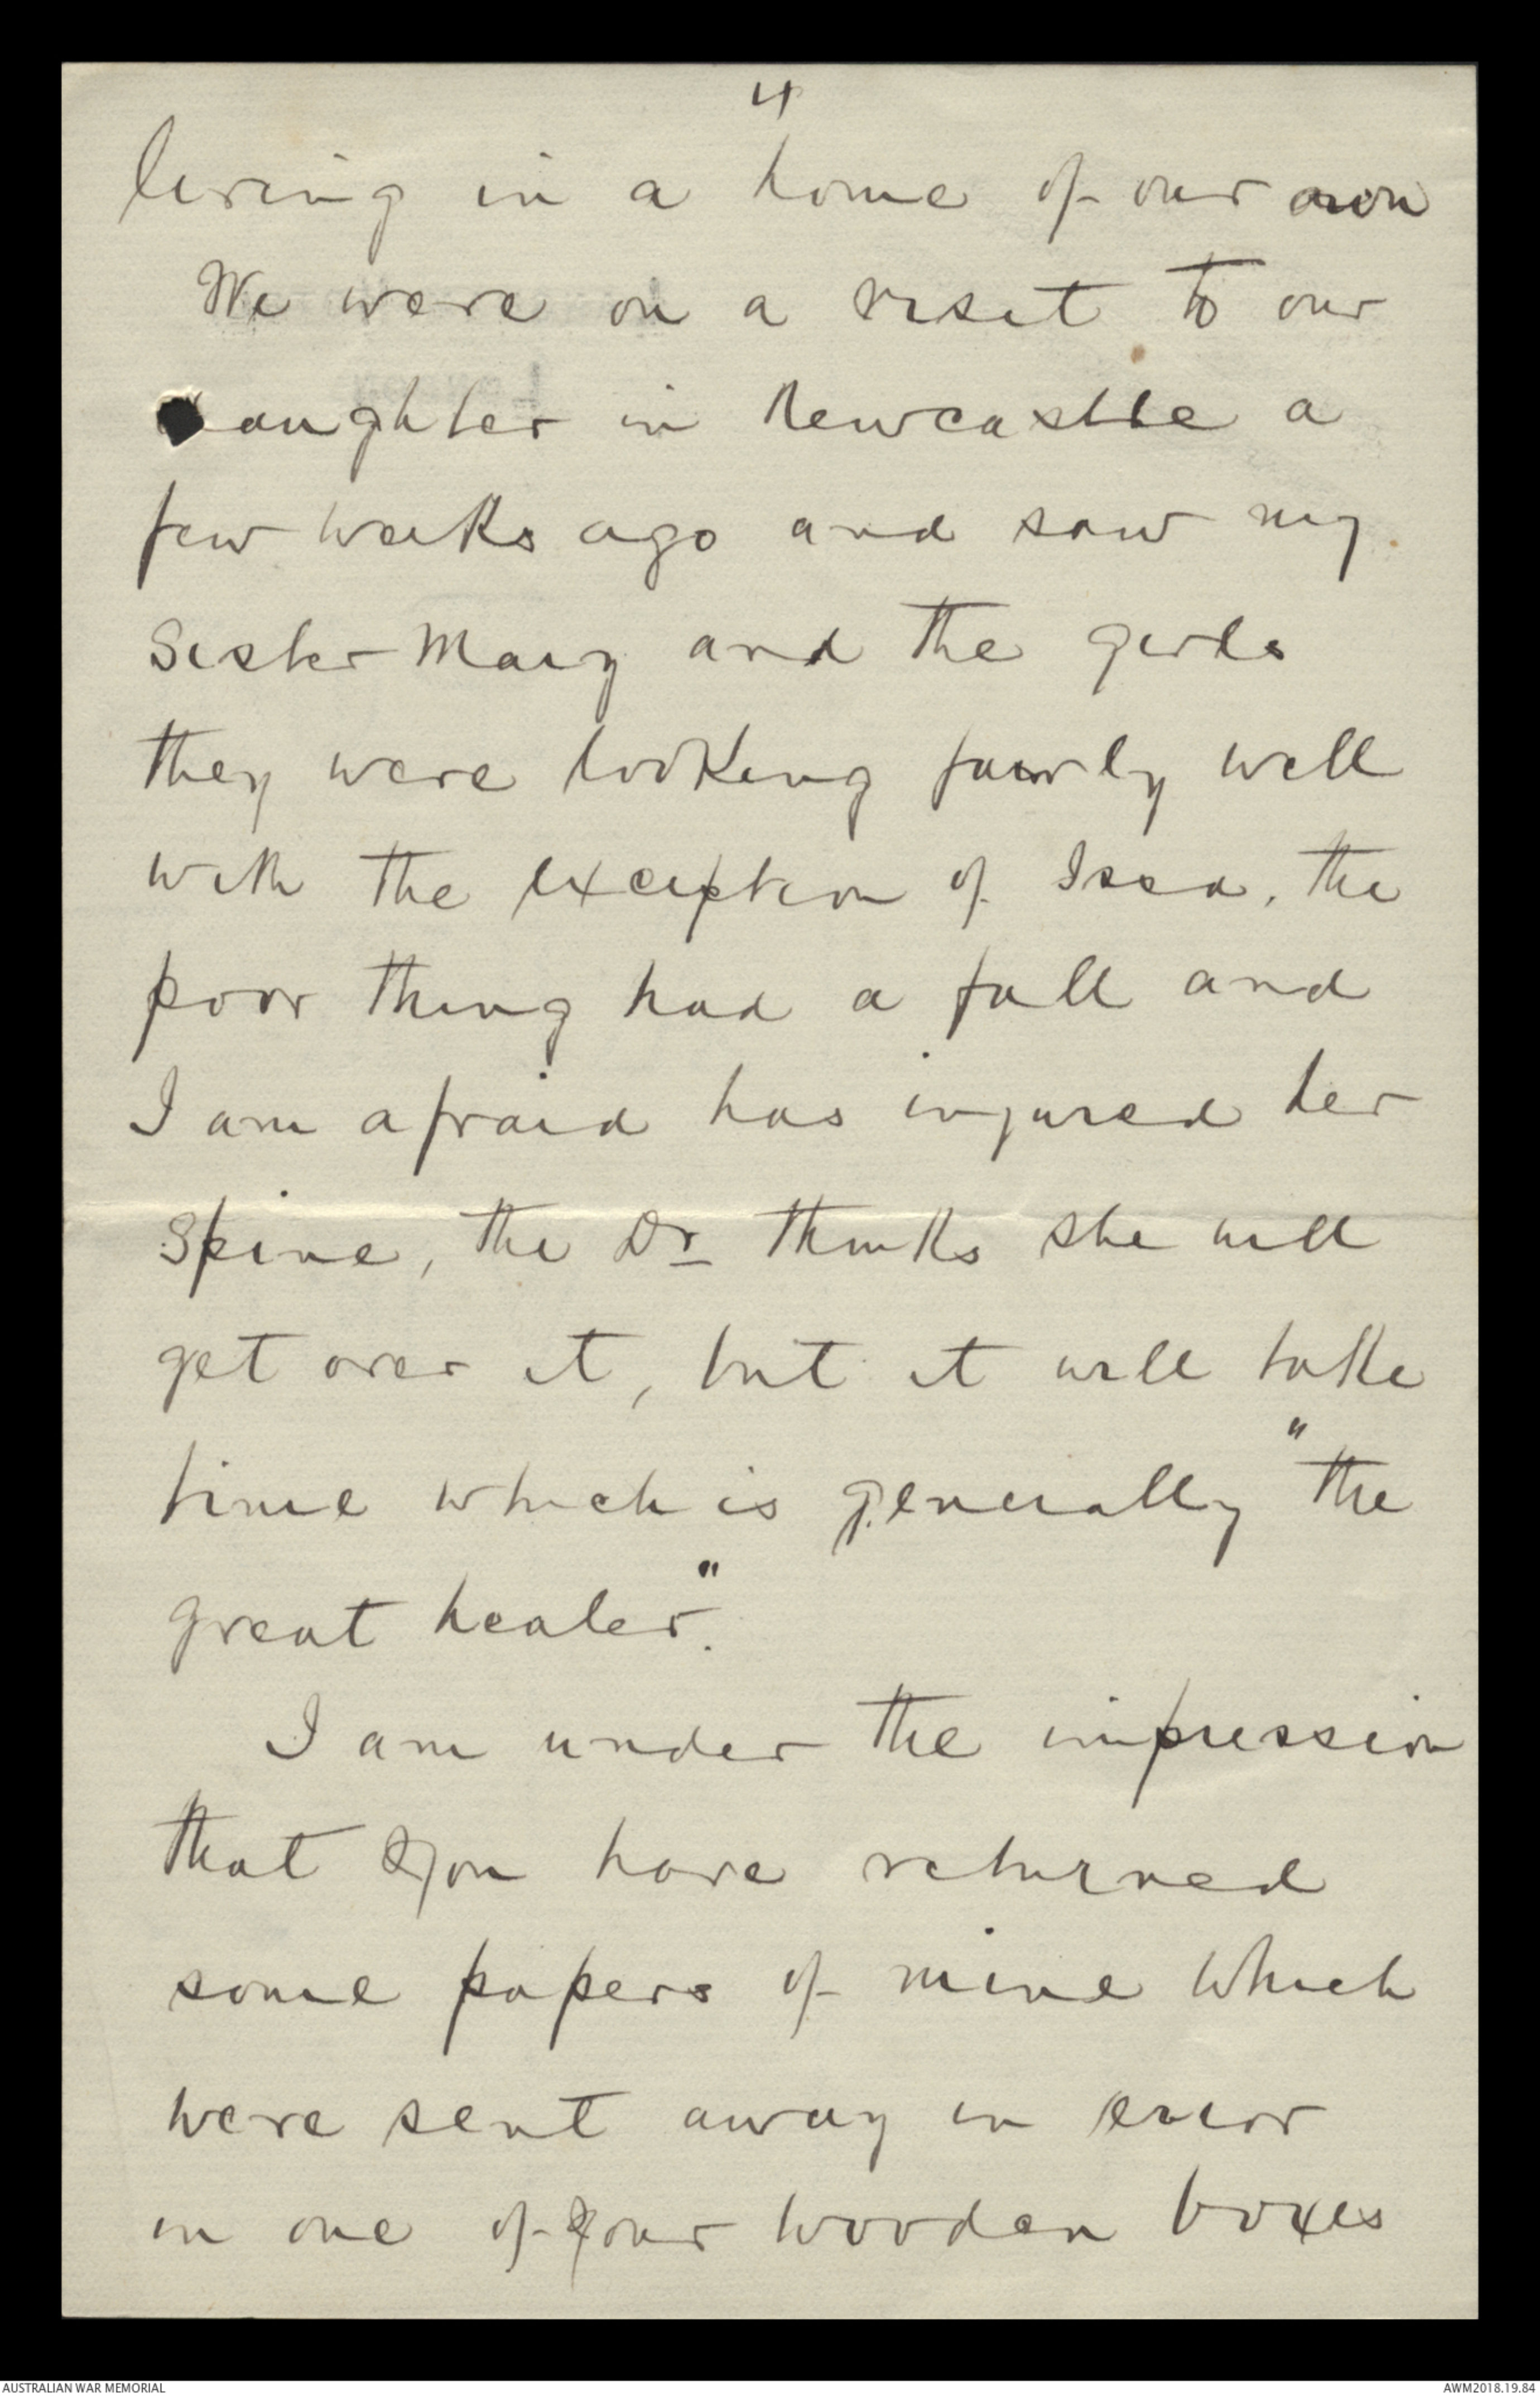 4
living in a home of our own
We were on a visit to our
daughter in Newcastle a
few weeks ago and saw my
Sister Mary and the girls
they were looking fairly well
with the exception of Issa, the
poor thing had a fall and
I am afraid has injured her
Spine, the Dr thinks she will
get over it, but it will take
time which is generally "the
great healer".
I am under the impression
that you have returned
some papers of mine which
were sent away in error
in one of your wooden boxes
AUSTRALIAN WAR MEMORIAL
AWM2018.19.84